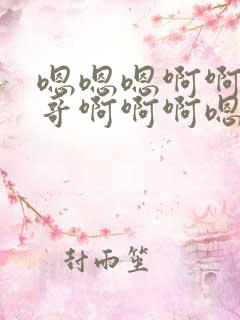 嗯嗯嗯啊啊
哥啊啊啊嗯
封雨笙